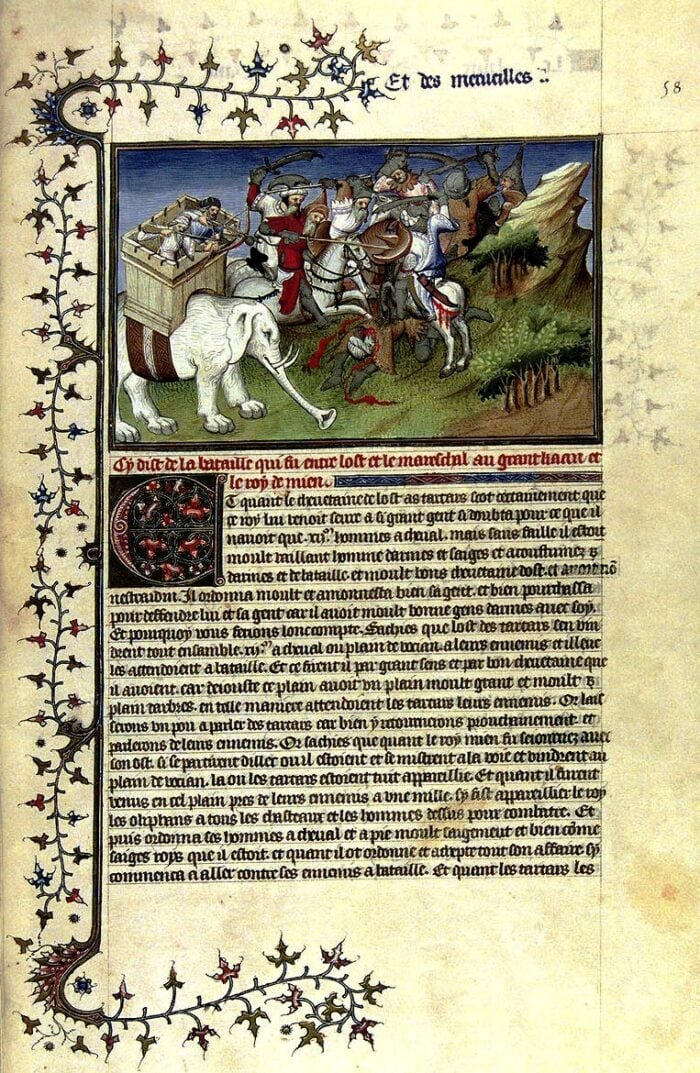 Et des merueilles
58
Cy dist de la bataille qui fu entre lost et le mareschal au grant kaan et
le roy de mien.
Et quant le cheuetaine de lost as tartars scot certainement que
ce roy lui venoit seure a si grant gent si doubta pour ce que il
nauoit que .xij. hommes a cheual. mais sans faille il estoit
moult vaillant homme darmes et saiges et acoustumez
darmes et de bataille. et moult bons cheuetaine dost. et
Il ordonna moult et amonnesta bien sa gent. et bien pourchassa
pour deffendre lui et sa gent car il auoit moult bonne gens darmes auec soy.
Et pourquoy vous feroiis lonc compte. Sachies que lost des tartars sen vin
drent tout ensamble .xij. a cheual ou plain de vocian. a leurs ennemis et illeuc
les attendoient a bataille. Et ce firent il par grant sens et par bon cheuetaine que
il auoient. car dejouste ce plain auoit vn plain moult grant et moult
plain darbres. en telle maniere attendoient les tartars leurs ennemis. Or lais
serons vn pou a parler des tartars car bien y retournerons prouchainement. et
parlerons de leurs ennemis. Or sachies que quant le roy mien fu seiournez auec
son ost. si se partirent dillec ou il estoient et se mistrent a la voie et vindrent au
plain de vocian. la ou les tartars estoient tuit appareillie. Et quant il furent
venus en cel plain pres de leurs ennemis a vne mille. sy fist appareillier le roy
les oliphans a tous les chasteaux et les hommes dessus pour combatre. Et
puis ordonna ses hommes a cheual et a pie moult saigement et bien cōme
saiges roys que il estoit. et quant il ot ordonne et tout son affaire sy
commenca a aller contre ses ennemis a bataille. Et quant les tartars les